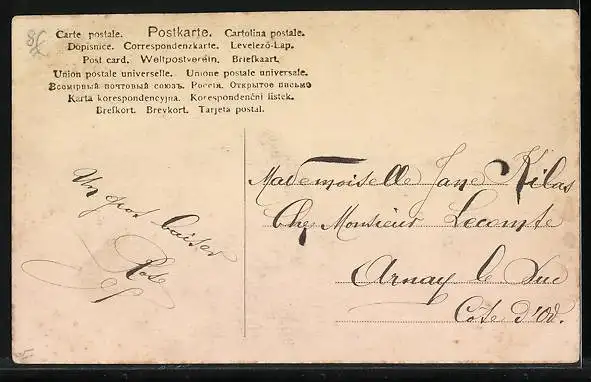 Carte postale. Postkarte. Cartolina postale.
Dopisnice. Correspondenzkarte. Levelező-Lap.
Post card. Weltpostverein. Briefkaart.
Union postale universelle. Unione postale universale.
Всемірный почтовый союзъ. Россія. Открытое письмо
Karta korespondencyjna. Korespondenční listek.
Brefkort. Brevkort. Tarjeta postal.
Un gros baiser
Rose
Mademoiselle Jane Kilas
Chez Monsieur Lecomte
Arnay le Duc
Côte d'Or.